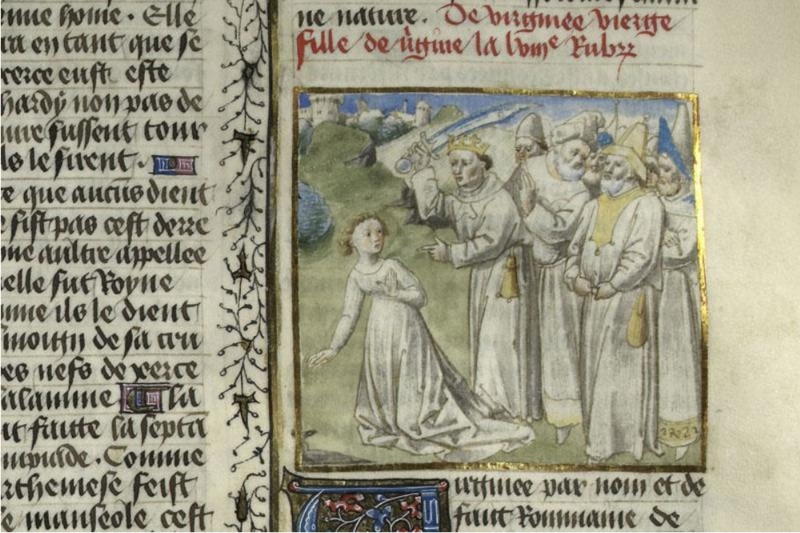 nne home. Elle
ra en tant que se
xerce eust este
hardy non pas de
ure fussent tour
ls le firent.
ce que aucus dient
e fist pas cest derre
me aultre appellee
elle fut Royne
mme ils le dient
es nefs de xerce
alamine la
it faitte la septa
mpiade. Comme
rthemese feist
e manseole cest
ne nature. De virginee vierge
fille de ūgine la lvme Rubr
urginee par nom et de
faut Rommaine de